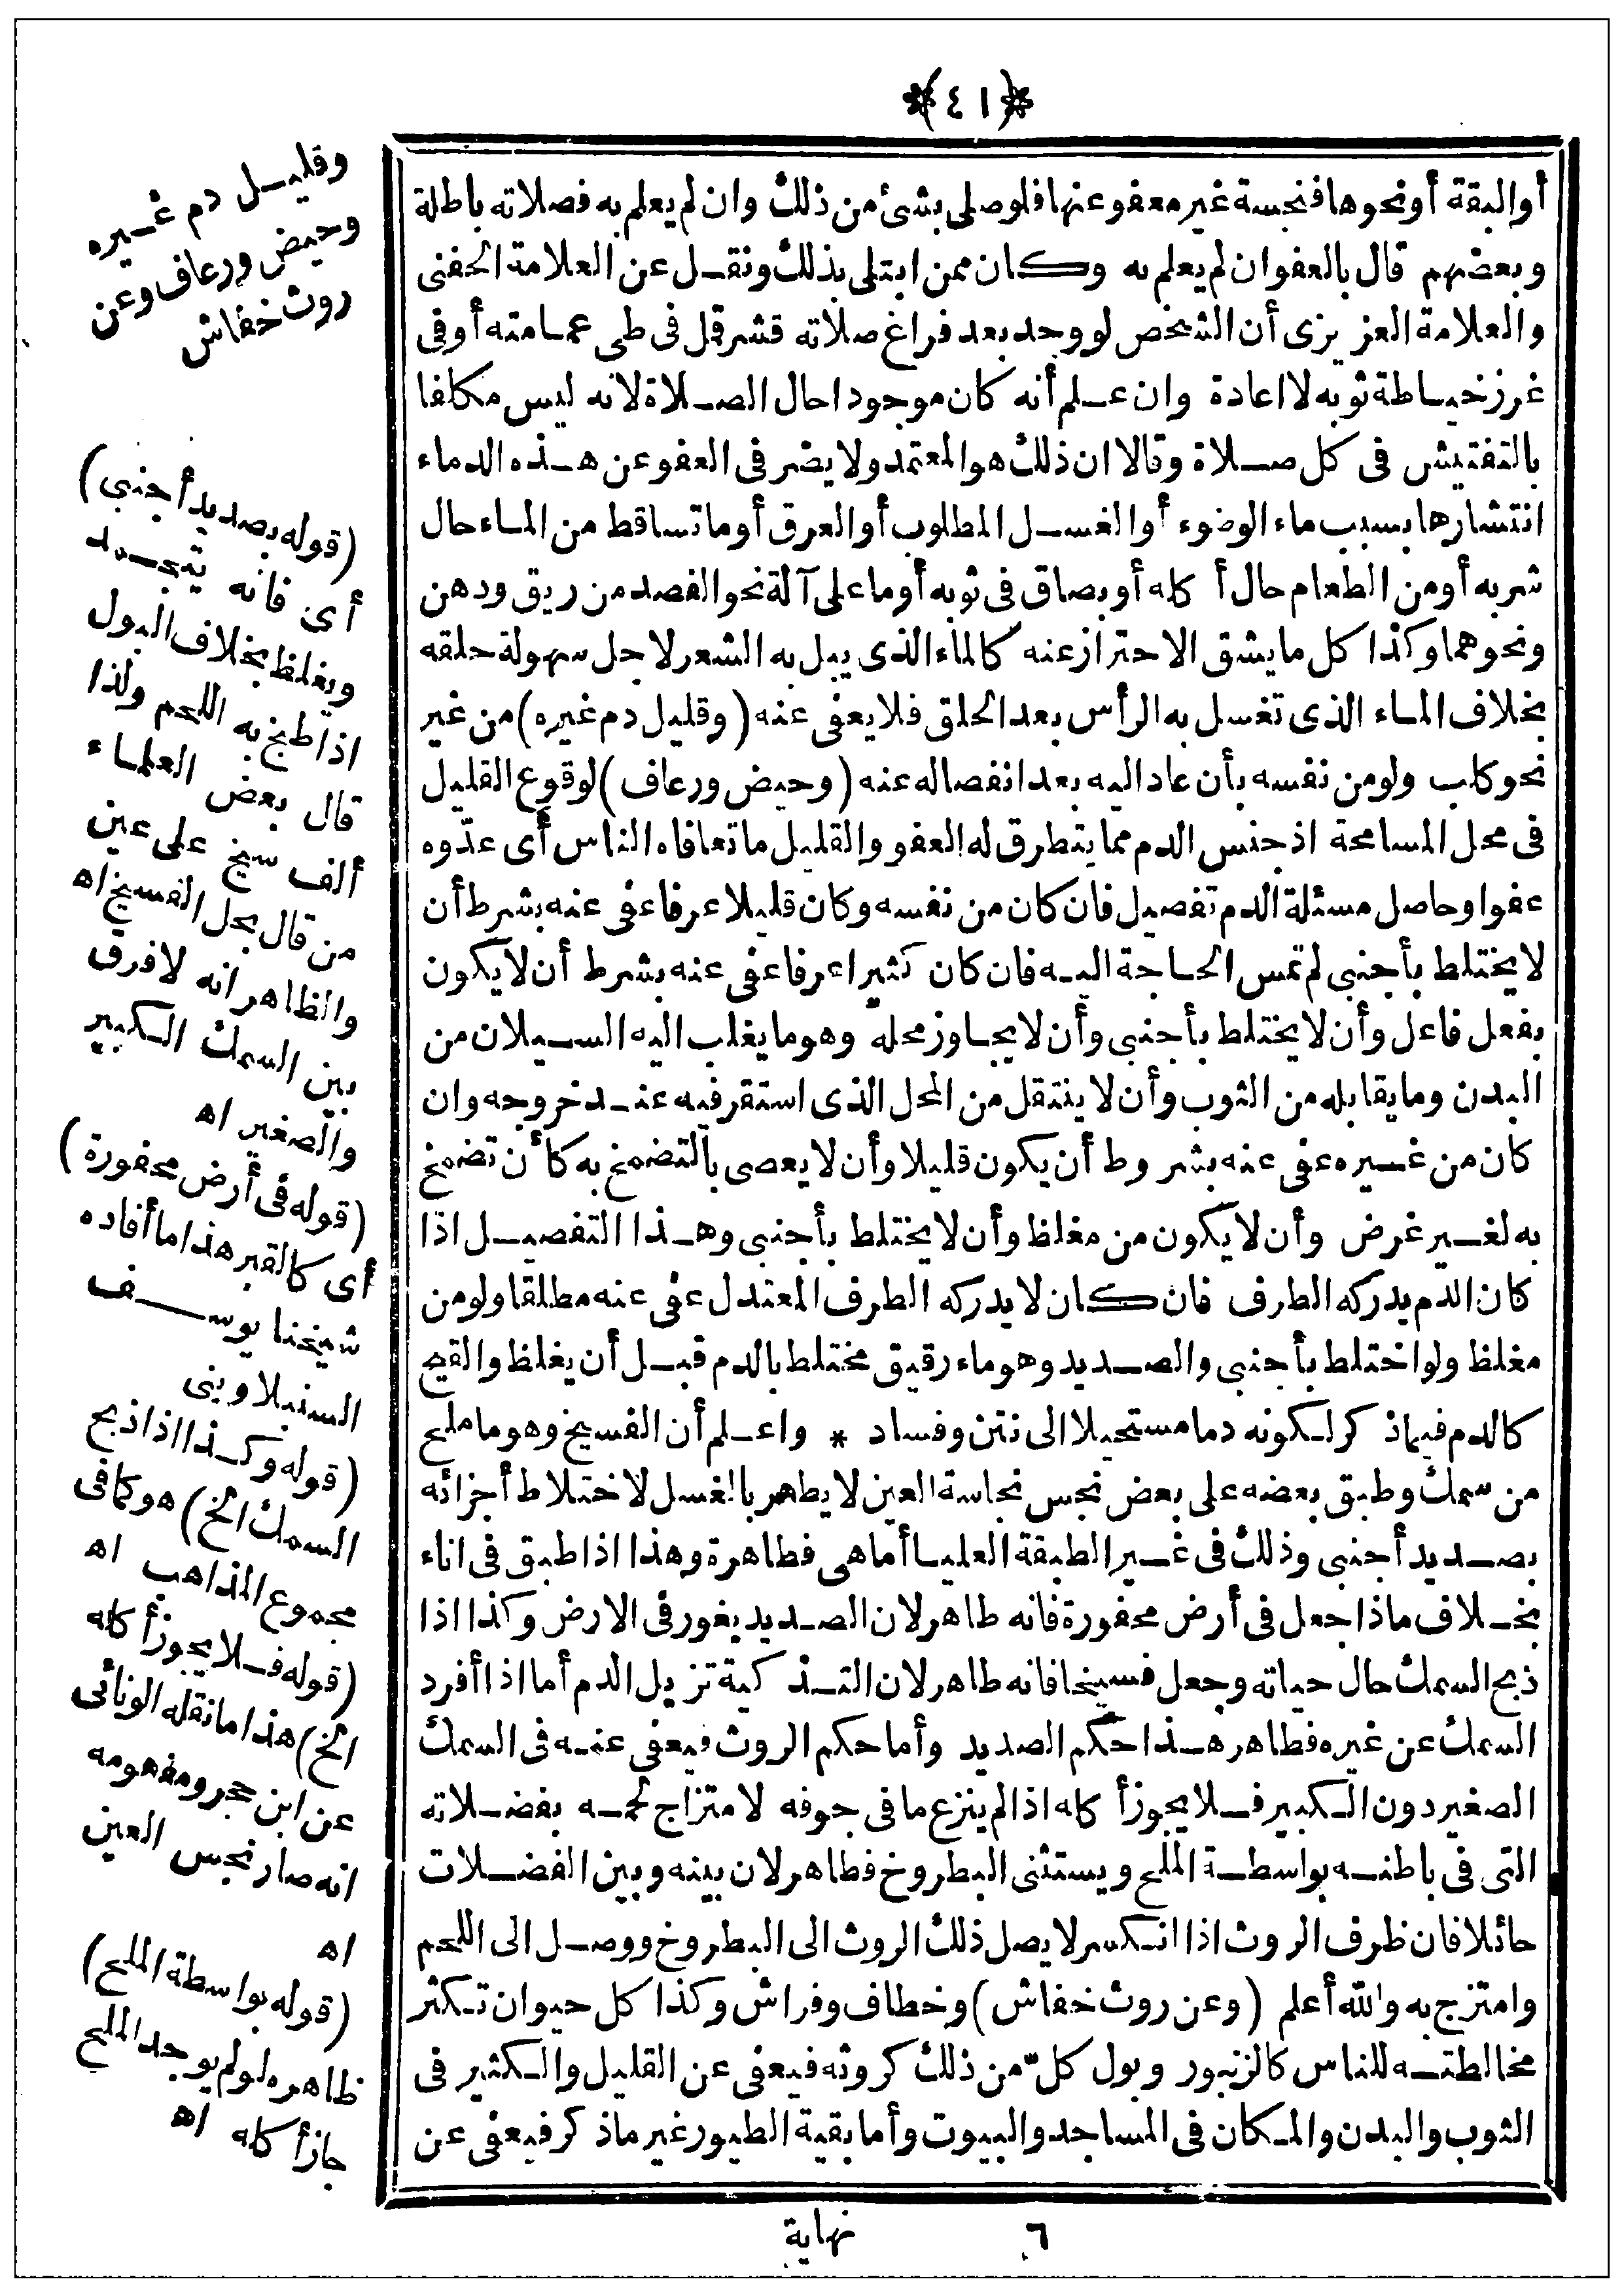 ﴿٤١﴾
أو البقة أو نحوها فنجسة غير معفو عنها فلو صلى بشئ من ذلك وان لم يعلم به فصلاته باطلة
وبعضهم قال بالعفوان لم يعلم به وكان ممن ابتلى بذلك ونقل عن العلامة الحفنى
والعلامة العزيزى أن الشخص لو وجد بعد فراغ صلاته قشر قمل فى طى عمامته أو فى
غرز خياطة ثوبه لا اعادة وان علم أنه كان موجودا حال الصلاة لانه ليس مكلفا
بالتفتيش فى كل صلاة وقالا ان ذلك هو المعتمد ولا يضر فى العفو عن هذه الدماء
انتشارها بسبب ماء الوضوء أو الغسل المطلوب أو العرق أو ما تساقط من الماء حال
شربه أو من الطعام حال أكله أو بصاق فى ثوبه أو ما على آلة نحو الفصد من ريق ودهن
ونحوهما وكذا كل ما يشق الاحتراز عنه كالماء الذى يبل به الشعر لاجل سهولة حلقه
بخلاف الماء الذى تغسل به الرأس بعد الحلق فلا يعفى عنه (وقليل دم غيره) من غير
نحو كلب ولو من نفسه بأن عاد اليه بعد انفصاله عنه (وحيض ورعاف) لوقوع القليل
فى محل المسامحة اذ جنس الدم مما يتطرق له العفو والقليل ما تعافاه الناس أى عدّوه
عفوا وحاصل مسئلة الدم تفصيل فان كان من نفسه وكان قليلا عرفا عفى عنه بشرط أن
لا يختلط بأجنبى لم تمس الحاجة اليه فان كان كثيرا عرفا عفى عنه بشرط أن لا يكون
بفعل فاعل وأن لا يختلط بأجنبى وأن لا يجاوز محله وهو ما يغلب اليه السيلان من
البدن وما يقابله من الثوب وأن لا ينتقل من المحل الذى استقر فيه عند خروجه وان
كان من غيره عفى عنه بشروط أن يكون قليلا وأن لا يعصى بالتضمخ به كأن تضمخ
به لغير غرض وأن لا يكون من مغلظ وأن لا يختلط بأجنبى وهذا التفصيل اذا
كان الدم يدركه الطرف فان كان لا يدركه الطرف المعتدل عفى عنه مطلقا ولو من
مغلظ ولو اختلط بأجنبى والصديد وهو ماء رقيق مختلط بالدم قبل أن يغلظ والقيح
كالدم فيما ذكر لكونه دما مستحيلا الى نتن وفساد * واعلم أن الفسيخ وهو ما ملح
من سمك وطبق بعضه على بعض نجس نجاسة العين لا يطهر بالغسل لاختلاط أجزائه
بصديد أجنبى وذلك فى غير الطبقة العليا أما هى فطاهرة وهذا اذا طبق فى اناء
بخلاف ماذا جعل فى أرض محفورة فانه طاهر لان الصديد يغور فى الارض وكذا اذا
ذبح السمك حال حياته وجعل فسيخا فانه طاهر لان التذكية تزيل الدم أما اذا أفرد
السمك عن غيره فطاهر هذا حكم الصديد وأما حكم الروث فيعفى عنه فى السمك
الصغير دون الكبير فلا يجوز أكله اذا لم ينزع ما فى جوفه لامتزاج لحمه بفضلاته
التى فى باطنه بواسطة الملح ويستثنى البطروخ فطاهر لان بينه وبين الفضلات
حائلا فان ظرف الروث اذا انكسر لا يصل ذلك الروث الى البطروخ ووصل الى اللحم
وامتزج به والله أعلم (وعن روث خفاش) وخطاف وفراش وكذا كل حيوان تكثر
مخالطته للناس كالزنبور وبول كلّ من ذلك كروثه فيعفى عن القليل والكثير فى
الثوب والبدن والمكان فى المساجد والبيوت وأما بقية الطيور غير ما ذكر فيعفى عن
٦ نهاية
وقليل دم غيره
وحيض ورعاف وعن
روث خفاش
(قوله بصديد أجنبى)
أى فانه يتجمد
ويغلظ بخلاف البول
اذا طبخ به اللحم ولذا
قال بعض العلماء
ألف سيخ على عين
من قال بحل الفسيخ اه
والظاهر انه لا فرق
بين السمك الكبير
والصغير اه
(قوله فى أرض محفورة)
أى كالقبر هذا ما أفاده
شيخنا يوسف
السنبلاوينى
(قوله وكذا اذا ذبح
السمك الخ) هو كما فى
مجموع المذاهب اه
(قوله فلا يجوز أكله
الخ) هذا ما نقله الونائى
عن ابن حجر ومفهومه
انه صار نجس العين
اه
(قوله بواسطة الملح)
ظاهره لو لم يوجد الملح
جاز أكله اه